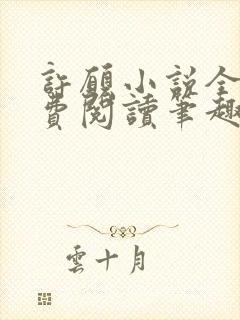 許願小說全
費閱讀筆趣
雲十月